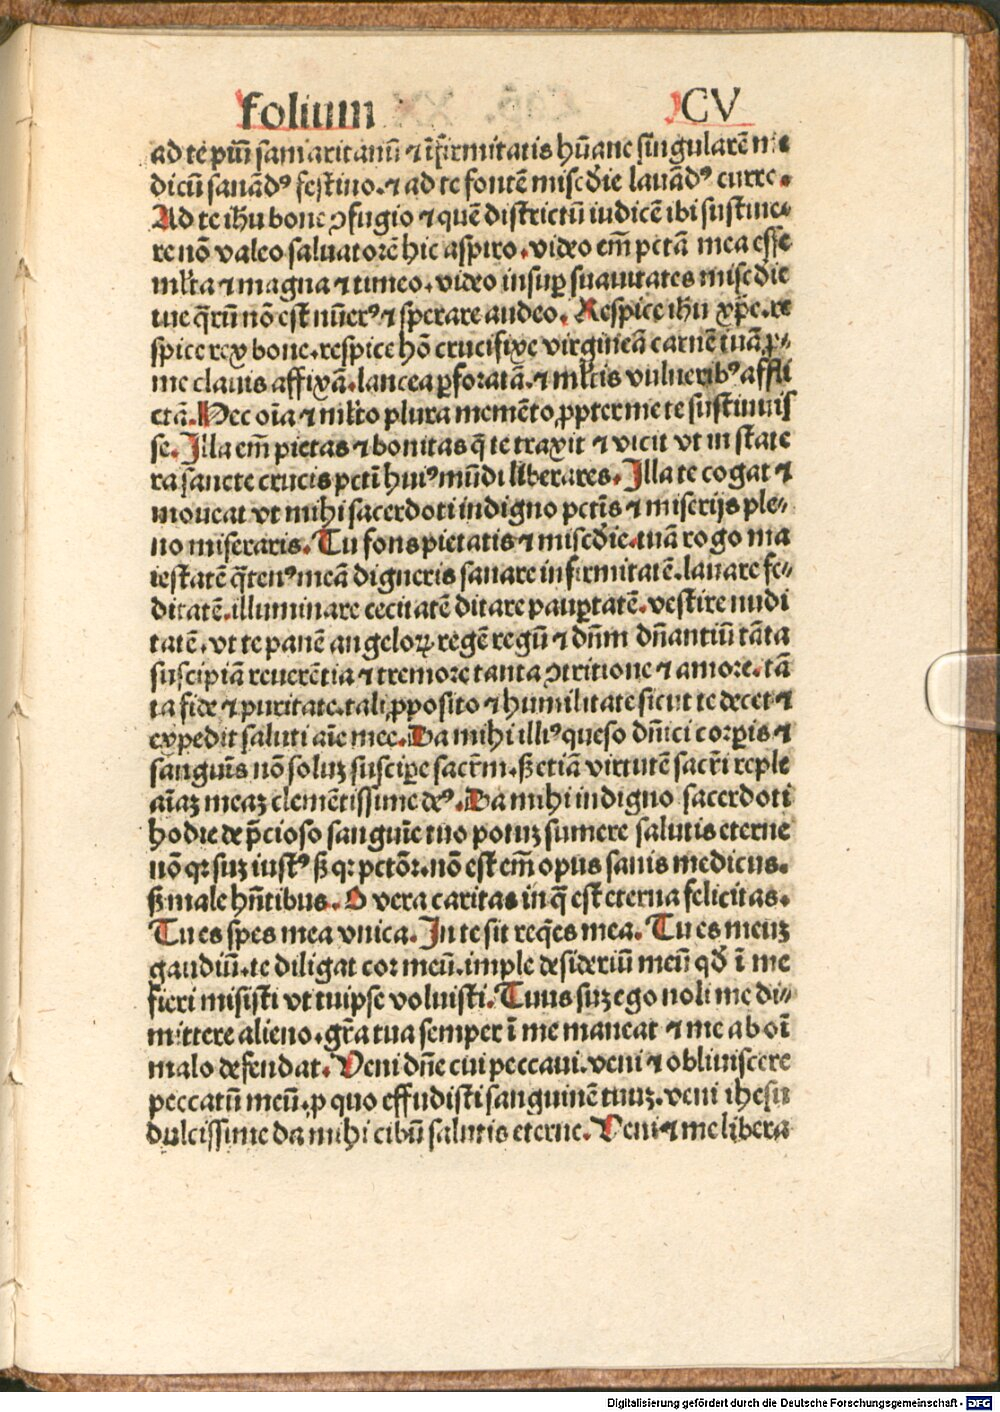 folium CV
ad te piū samaritanū ⁊ īfirmitatis hūane singularē me
dicū sanādꝰ festino.⁊ ad te fontē misc̄die lauādꝰ curre.
Ad te ih̄u bone ꝯfugio ⁊ quē districtū iudicē ibi sustine⸗
re nō valeo saluatorē hic aspiro.video em̄ pctā mea esse
ml̄ta ⁊ magna ⁊ timeo.video insuꝑ suauitates misc̄die
tue q̄rū nō est nūerꝰ ⁊ sperare audeo. Respice ih̄u xp̄e.re
spice rex bone.respice hō crucifixe virgineā carnē tuā ꝓ⸗
me clauis affixā.lancea ꝑforatā.⁊ ml̄tis vulneribꝰ affli
ctā.Hec oīa ⁊ ml̄to plura memēto ꝓpter me te sustinuis
se. Illa em̄ pietas ⁊ bonitas q̄ te traxit ⁊ vicit vt in state
ra sancte crucis pctī huiꝰ mūdi liberares. Illa te cogat ⁊
moueat vt mihi sacerdoti indigno pctīs ⁊ miserijs ple⸗
no miseraris. Tu fons pietatis ⁊ misc̄die.tuā rogo ma
iestatē q̄tenꝰ meā digneris sanare infirmitatē.lauare fe⸗
ditatē.illuminare cecitatē ditare pauꝑtatē.vestire nudi
tatē.vt te panē angeloꝝ regē regū ⁊ dn̄m dn̄antiū tāta
suscipiā reuerētia ⁊ tremore tanta ꝯtritione ⁊ amore.tā
ta fide ⁊ puritate.tali ꝓposito ⁊ humilitate sicut te decet ⁊
expedit saluti aīe mee.Da mihi illiꝰ queso dn̄ici corꝑis ⁊
sanguīs nō soluꝫ suscipe sacr̄m.ẜ etiā virtutē sacr̄i reple
aīaꝫ meaꝫ clemētissime deꝰ.Da mihi indigno sacerdoti
hodie de p̄cioso sanguīe tuo potuꝫ sumere salutis eterne
nō qꝛ suꝫ iustꝰ ẜ qꝛ pctōr.nō est em̄ opus sanis medicus.
ẜ male hn̄tibus. O vera caritas in q̄ est eterna felicitas.
Tu es spes mea vnica. In te sit req̄es mea. Tu es meuꝫ
gaudiū.te diligat cor meū.imple desideriū meū qd̄ ī me
fieri misisti vt tuipse voluisti.Tuus suꝫ ego noli me di⸗
mittere alieno.gr̄a tua semper ī me maneat ⁊ me ab oī
malo defendat. Veni dn̄e cui peccaui.veni ⁊ obliuiscere
peccatū meū.p quo effudisti sanguinē tuuꝫ.veni ihesu
dulcissime da mihi cibū salutis eterne. Veni ⁊ me libera
Digitalisierung gefördert durch die Deutsche Forschungsgemeinschaft - DFG